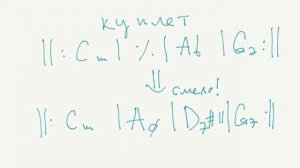 куплет
||: Cm | ٪ | Ab | G7 :||
⇓ смело!
||: Cm | Aø | D7#11 | G7 :||